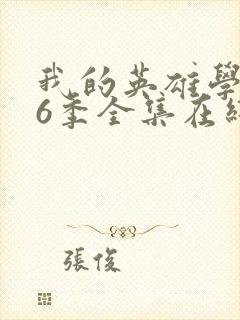 我的英雄學
6季全集在
張俊